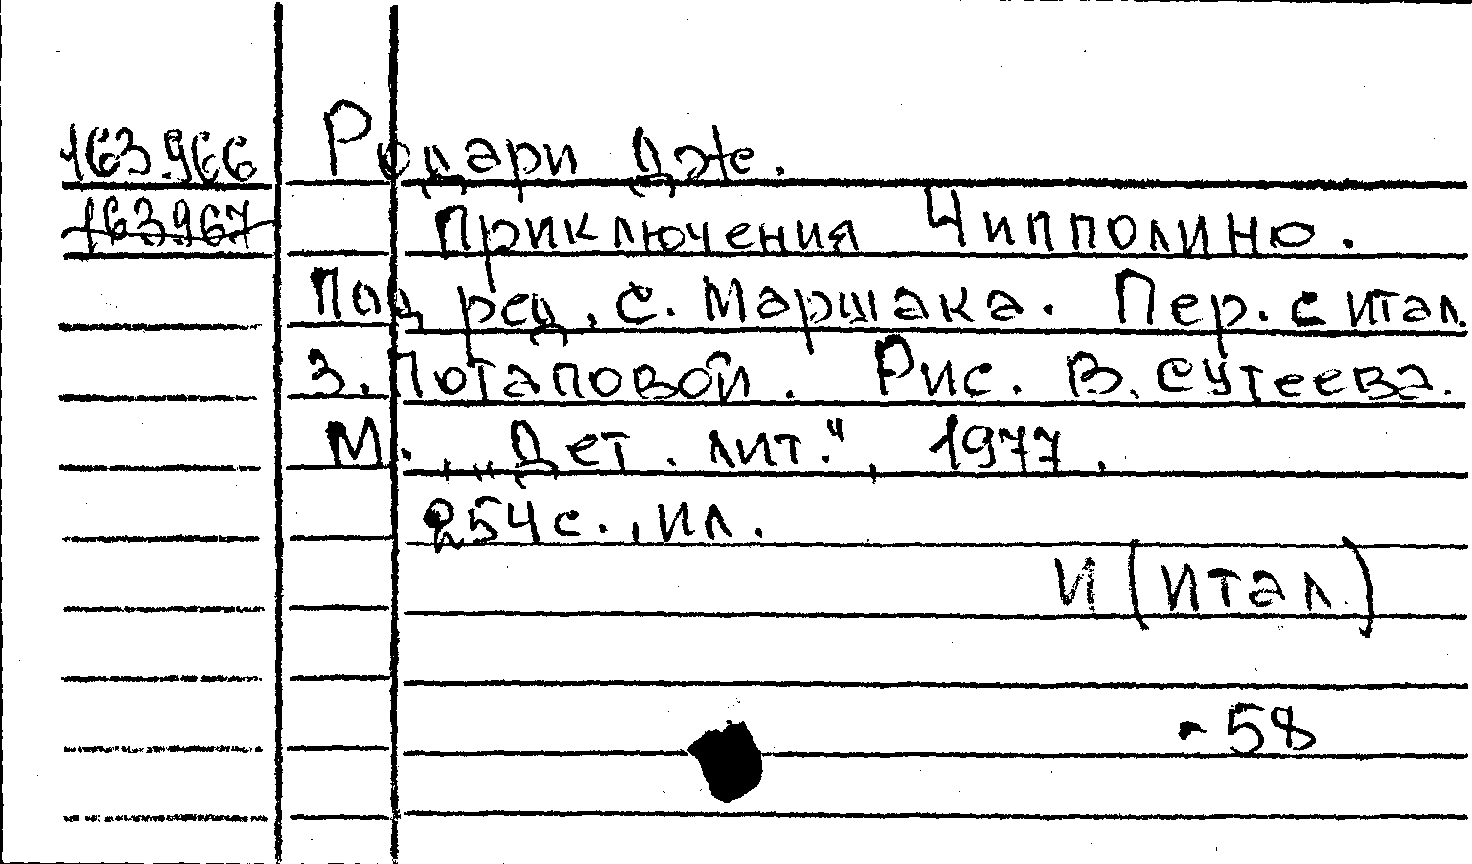 163.966 Родари Дж.
163967 Приключения Чипполино.
Под ред. С. Маршака. Пер. с итал.
З. Потаповой. Рис. В. Сутеева.
М., „Дет. лит.", 1977.
254 с., ил.
И (итал.)
-58